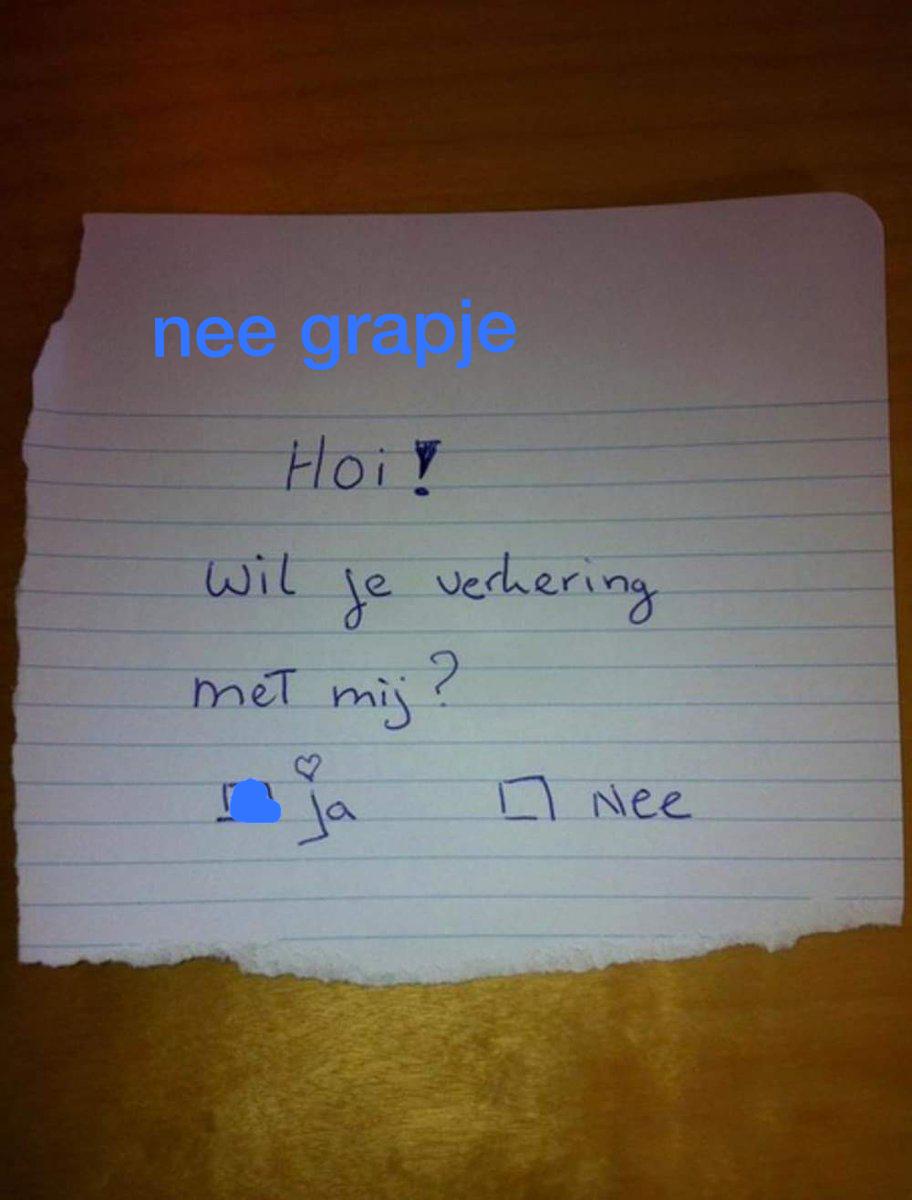 nee grapje
Hoi!
Wil je verkering
met mij?
ja Nee